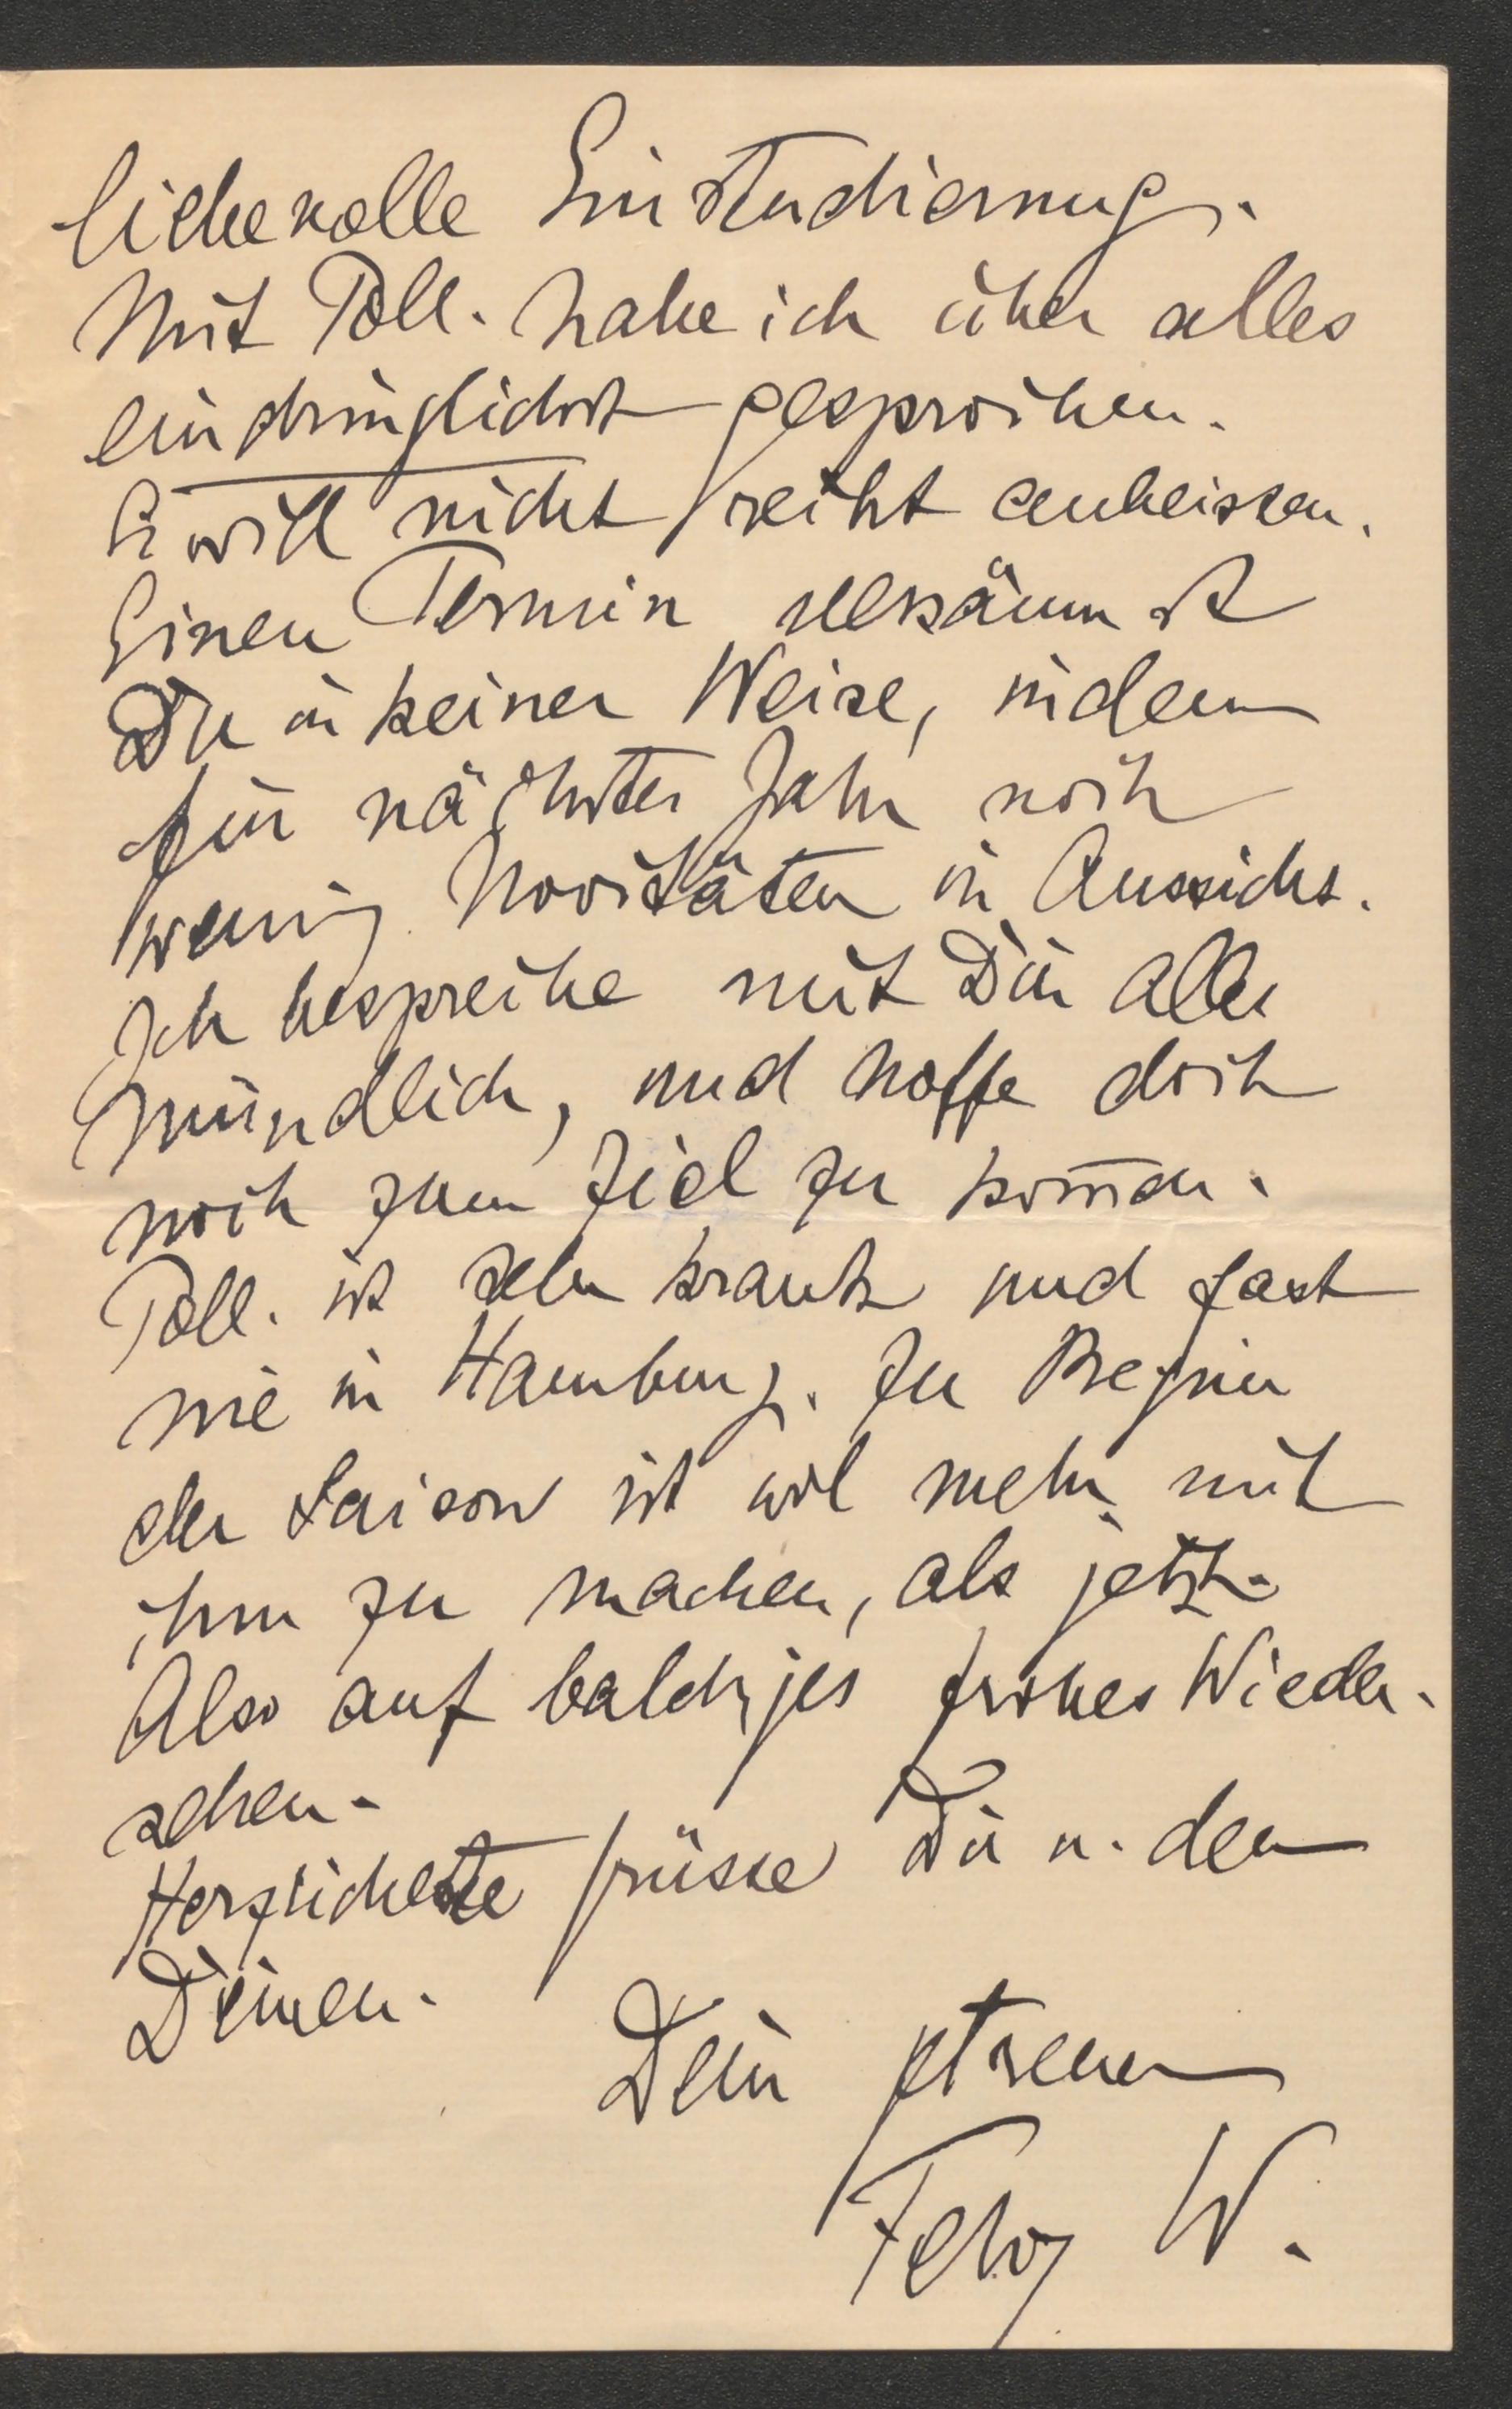 liebevolle Einstudierung.
Mit Poll. habe ich über alles
eindringlichst gesprochen.
Er will nicht recht anbeissen.
Einen Termin versäumst
Du in keiner Weise, indem
für nächstes Jahr noch
wenig Novitäten in Aussicht.
Ich bespreche mit Dir alles
mündlich, und hoffe doch
noch zum Ziel zu kom̄en.
Poll. ist sehr krank und fast
nie in Hamburg. Zu Beginn
der Saison ist wol mehr mit
ihm zu machen, als jetzt.
Also auf baldiges frohes Wieder-
sehen.
Herzlichste Grüsse Dir u. den
Deinen.
Dein getreuer
Felix W.